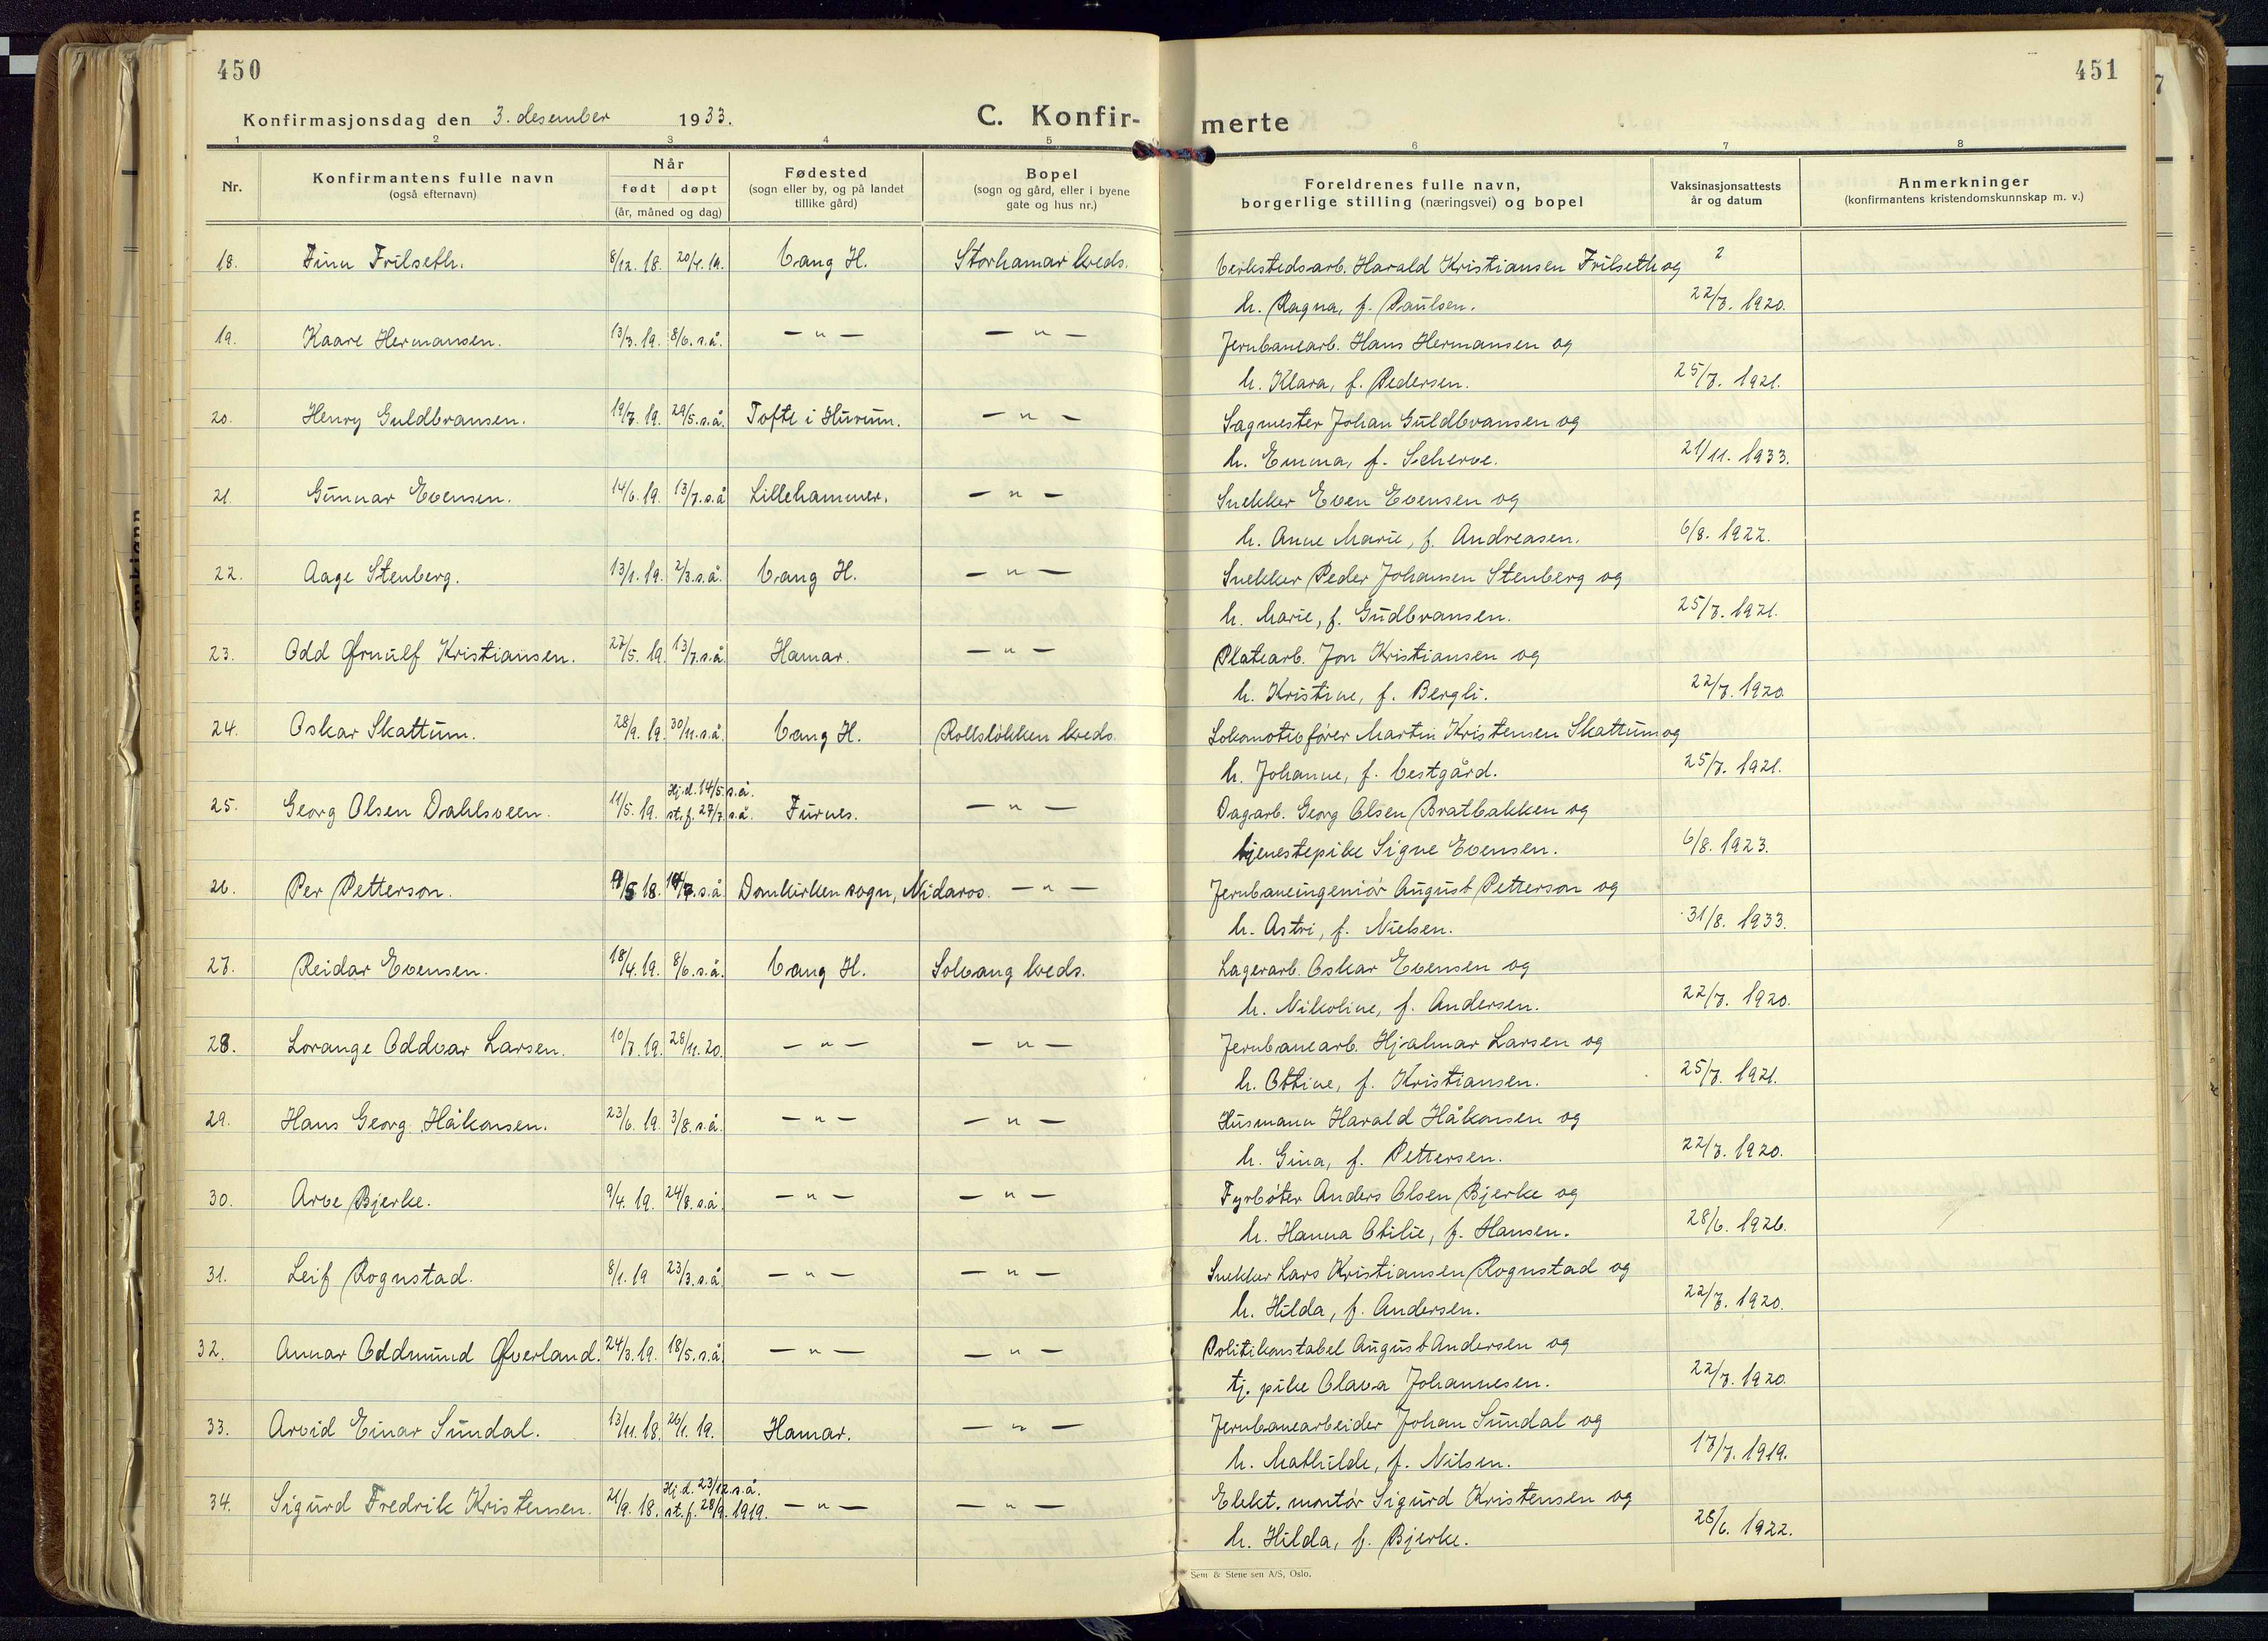 450
Konfirmasjonsdag den 3. desember 1933.
C. Konfir-
1 2 3 4 5
Nr.
Konfirmantens fulle navn
(også efternavn)
Når
født døpt
(år, måned og dag)
Fødested
(sogn eller by, og på landet
tillike gård)
Bopel
(sogn og gård, eller i byene
gate og hus nr.)
18. Finn Frilseth. 8/12. 18. 20/4. 19. Vang H. Storhamar kreds.
19. Kaare Hermansen. 13/3. 19. 8/6. s.å. — " — — " —
20. Henry Guldbransen. 19/3. 19. 29/5. s.å. Tofte i Hurum. — " —
21. Gunnar Evensen. 14/6. 19. 13/7. s.å Lillehammer. — " —
22. Aage Stenberg. 13/1. 19. 2/3. s.å. Vang H. — " —
23. Odd Ørnulf Kristiansen. 27/5. 19. 13/7. s.å. Hamar. — " —
24. Oskar Skattum. 28/9. 19. 30/11. s.å. Vang H. Rollsløkken kreds.
Hj. d. 14/5. s.å.
25. Georg Olsen Dahlsveen. 11/5. 19. st. f. 27/7. s.å. Furnes. — " —
26. Per Petterson. 18. s.å. Domkirken sogn, Nidaros. — " —
27. Reidar Evensen. 18/4. 19. 8/6. s.å. Vang H. Solvang kreds.
28. Lorange Oddvar Larsen. 10/7. 19. 28/11. 20. — " — — " —
29. Hans Georg Håkonsen. 23/6. 19. 3/8. s.å. — " — — " —
30. Arve Bjerke. 9/4. 19. 24/8. s.å. — " — — " —
31. Leif Rognstad. 8/1. 19 23/3. s.å. — " — — " —
32. Annar Oddmund Øverland. 24/3. 19. 18/5. s.å. — " — — " —
33. Arvid Einar Sundal. 13/11. 18. 26/1. 19. Hamar. — " —
Hj. d. 23/12. s.å.
34. Sigurd Fredrik Kristensen. 21/9. 18. st. f. 28/9. 1919. — " — — " —
451
merte
6 7 8
Foreldrenes fulle navn,
borgerlige stilling (næringsvei) og bopel
Vaksinasjonsattests
år og datum
Anmerkninger
(konfirmantens kristendomskunnskap m. v.)
Verkstedsarb. Harald Kristiansen Frilseth og 2
h. Ragna, f. Paulsen. 22/7. 1920.
Jernbanearb. Hans Hermansen og
h. Klara, f. Pedersen. 25/7. 1921.
Sagmester Johan Guldbransen og
h. Emma, f. Scherve. 21/11. 1933.
Snekker Even Evensen og
h. Anne Marie, f. Andreasen. 6/8. 1922.
Snekker Peder Johansen Stenberg og
h. Marie, f. Gudbransen. 25/7. 1921.
Platearb. Jon Kristiansen og
h. Kristine, f. Bergli. 22/7. 1920
Lokomotivfører Martin Kristensen Skattum og
h. Johanne, f. Vestgård. 25/7. 1921.
Dagarb. Georg Olsen Bratbakken og
tjenestepike Signe Evensen. 6/8. 1923.
Jernbaneingeniør August Petterson og
h. Astri, f. Nielsen. 31/8. 1933.
Lagerarb. Oskar Evensen og
h. Nikoline, f. Andersen. 22/7. 1920.
Jernbanearb. Hjalmar Larsen og
h. Ottine, f. Kristiansen. 25/7. 1921.
Husmann Harald Håkonsen og
h. Gina, f. Pettersen. 22/7. 1920.
Fyrbøter Anders Olsen Bjerke og
h. Hanna Otilie, f. Hansen. 28/6. 1926.
Snekker Lars Kristiansen Rognstad og
h. Hilda, f. Andersen. 22/7. 1920.
Politikonstabel August Andersen og
tj. pike Olava Johannesen. 22/7. 1920.
Jernbanearbeider Johan Sundal og
h. Mathilde, f. Nilsen. 17/7. 1919.
Elekt. montør Sigurd Kristensen og
h. Hilda, f. Bjerke. 28/6. 1922.
Sem & Stenersen A/S, Oslo.